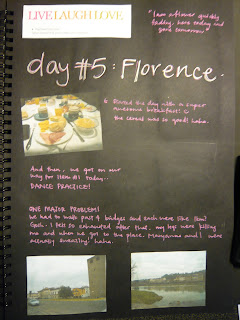 LIVELAUGHLOVE
"I am a flower quickly
fading, here today and
gone tomorrow"
day #5: Florence.
Started the day with a super
awesome breakfast!
the cereal was so good! haha.
And then, we got on our
way for item #1 today...
DANCE PRACTICE!
ONE MAJOR PROBLEM!
We had to walk past 4 bridges and each were like 1km!
Gosh. I felt so exhausted after that, my legs were killing
me and when we got to the place, Maryanna and I were
actually sweating! haha.